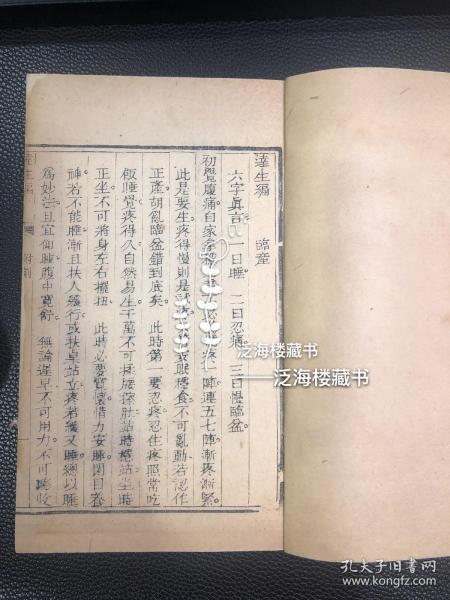 達生編　臨產
六字真言　一曰睡　二曰忍痛　三曰慢臨盆
初覺腹痛自家 陣連五七陣漸疼漸緊
此是要生疼得慢則是 眠穩食不可亂動若認作
正產胡亂臨盆錯到底矣　此時第一要忍疼忍住疼照常吃
飯睡覺疼得久自然易生千萬不可 腰 肚站時 站坐時
正坐不可將身左右擺扭　此時必要寬懷惜力安睡閉目養
神若不能睡漸且扶人緩行或扶桌站立疼若緩又睡總以睡
為妙法且宜仰睡腹中寬舒　無論遲早不可用力不可聽收
達生編　附刻
泛海楼藏书
泛海楼藏书
孔夫子旧书网
www.kongfz.com